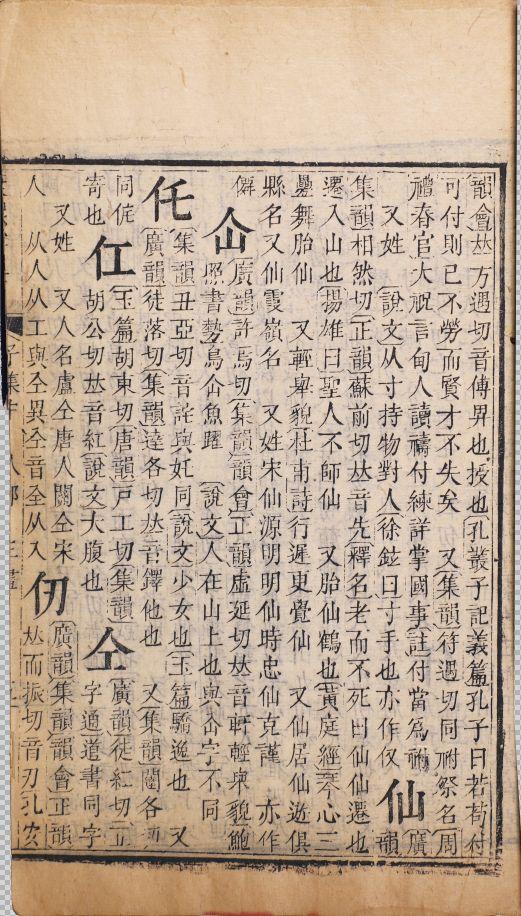 韻會𠀤方遇切音傅畀也授也孔叢子記義篇孔子曰若苟付
可付則已不勞而賢才不失矣 又集韻符遇切同祔祭名周
禮春官大祝言甸人讀禱付練祥掌國事註付當爲祔
又姓 說文从寸持物對人徐鉉曰寸手也亦作㐲 仙 廣韻
集韻相然切正韻蘇前切𠀤音先釋名老而不死曰仙仙遷也
遷入山也揚雄曰聖人不師仙 又胎仙鶴也黃庭經琴心三
疊舞胎仙 又輕舉貌杜甫詩行遲更覺仙 又仙居仙遊俱
縣名又仙霞嶺名 又姓宋仙源明明仙時忠仙克謹 亦作
僊 仚 廣韻許焉切集韻韻會正韻虛延切𠀤音軒輕舉貌鮑
照書勢鳥仚魚躍 說文人在山上也與屳字不同
仛 集韻丑亞切音詫與奼同說文少女也玉篇驕逸也 又
廣韻徒落切集韻達各切𠀤音鐸他也 又集韻闥各切
同侂 仜 玉篇胡東切唐韻戸工切集韻
寄也 胡公切𠀤音紅說文大腹也 仝 廣韻徒紅切
字通道書同字
又姓 又人名盧仝唐人關仝宋
人 从人从工與仝異仝音全从入 仞 廣韻集韻韻會正韻
𠀤而振切音刃孔安